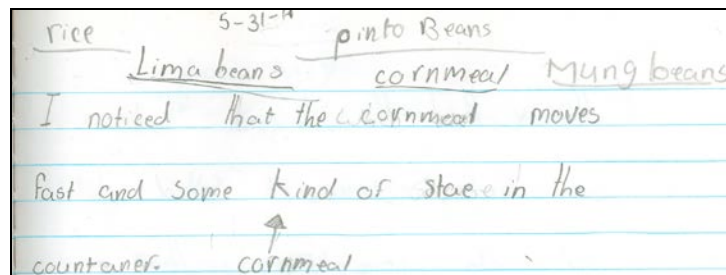 5-31-
rice pinto Beans
Lima beans cornmeal Mung beans
I noticed that the cornmeal moves
fast and some kind of stae in the
countaner. cornmeal